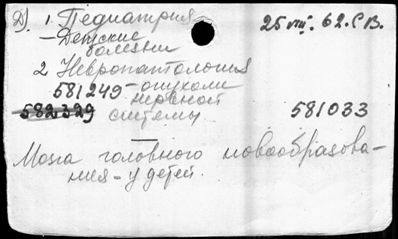 Д). 1. Педиатрия 25 VIII. 62. С В.
— Детские
болезни
2 Невропатология
581249 - опухоли
нервной
582329 системы 581033
Мозга головного новообразова-
ния - у детей.